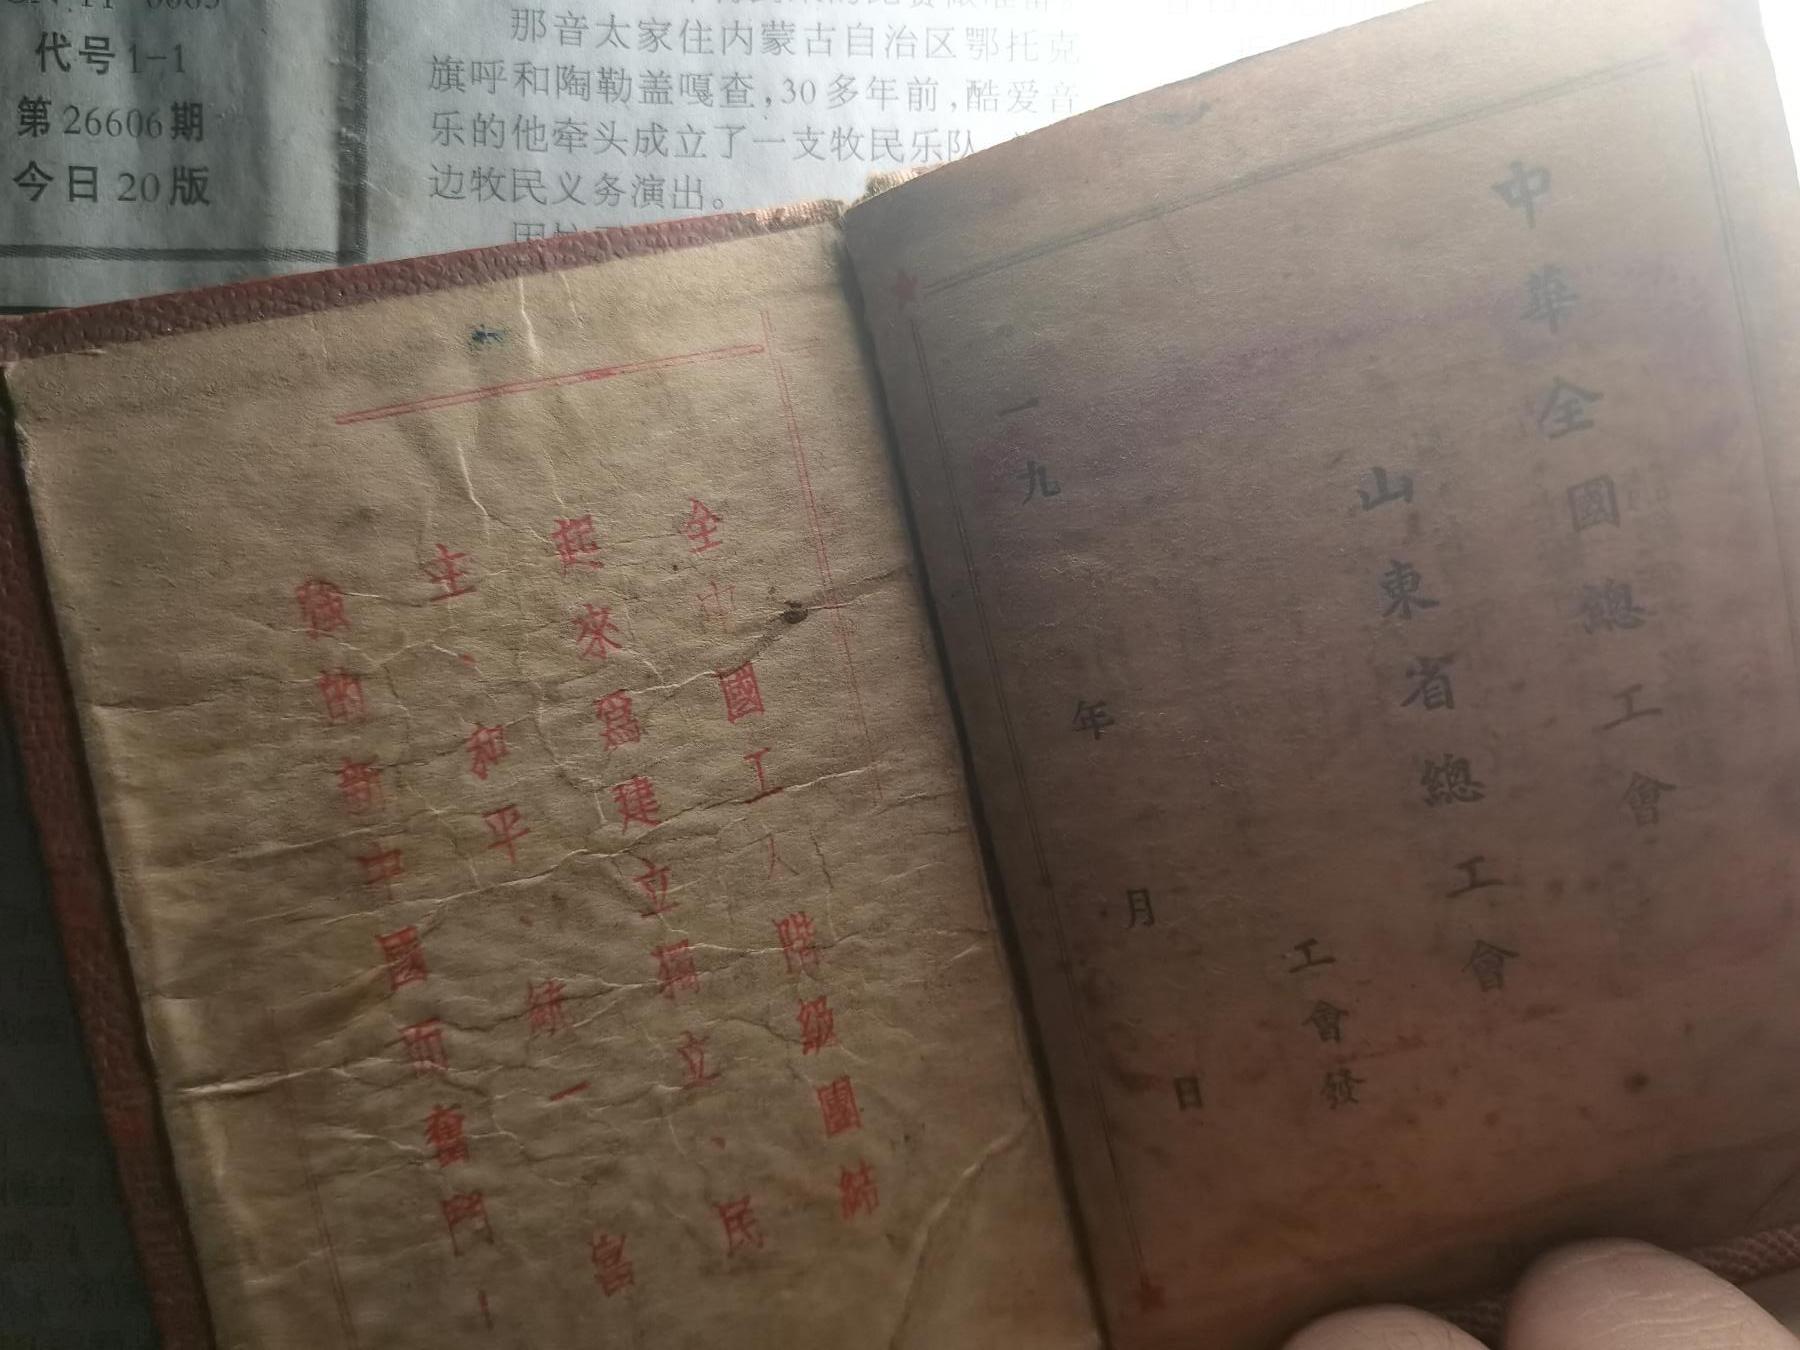 代号1-1
第26606期
今日20版
那音太家住内蒙古自治区鄂托克
旗呼和陶勒盖嘎查,30多年前,酷爱音
乐的他牵头成立了一支牧民乐队
边牧民义务演出。
全中國工人階級團結
起來爲建立獨立、民
主、和平、統一、富
強的新中國而奮鬥!
中華全國總工會
山東省總工會
工會發
一九 年 月 日